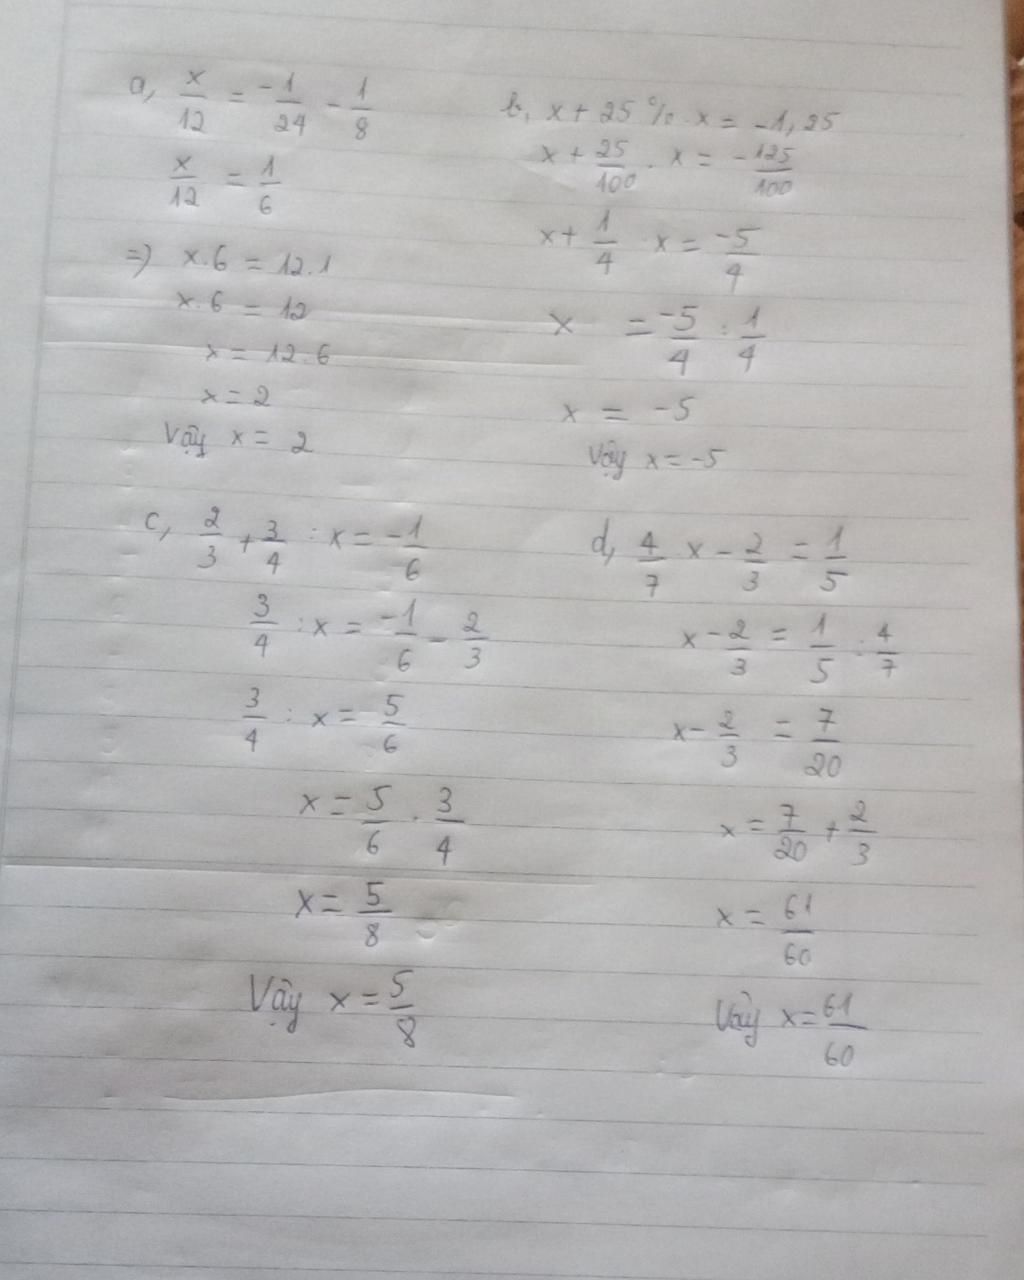 a, x/12 = -1/24 - 1/8
x/12 = 1/6
=> x.6 = 12.1
x.6 = 12
x = 12:6
x = 2
Vậy x = 2
b, x + 25%.x = -1,25
x + 25/100 . x = -125/100
x + 1/4 . x = -5/4
x = -5/4 : 1/4
x = -5
Vậy x = -5
c, 2/3 + 3/4 : x = -1/6
3/4 : x = -1/6 - 2/3
3/4 : x = 5/6
x = 5/6 . 3/4
x = 5/8
Vậy x = 5/8
d, 4/7 x - 2/3 = 1/5
x - 2/3 = 1/5 : 4/7
x - 2/3 = 7/20
x = 7/20 + 2/3
x = 61/60
Vậy x = 61/60